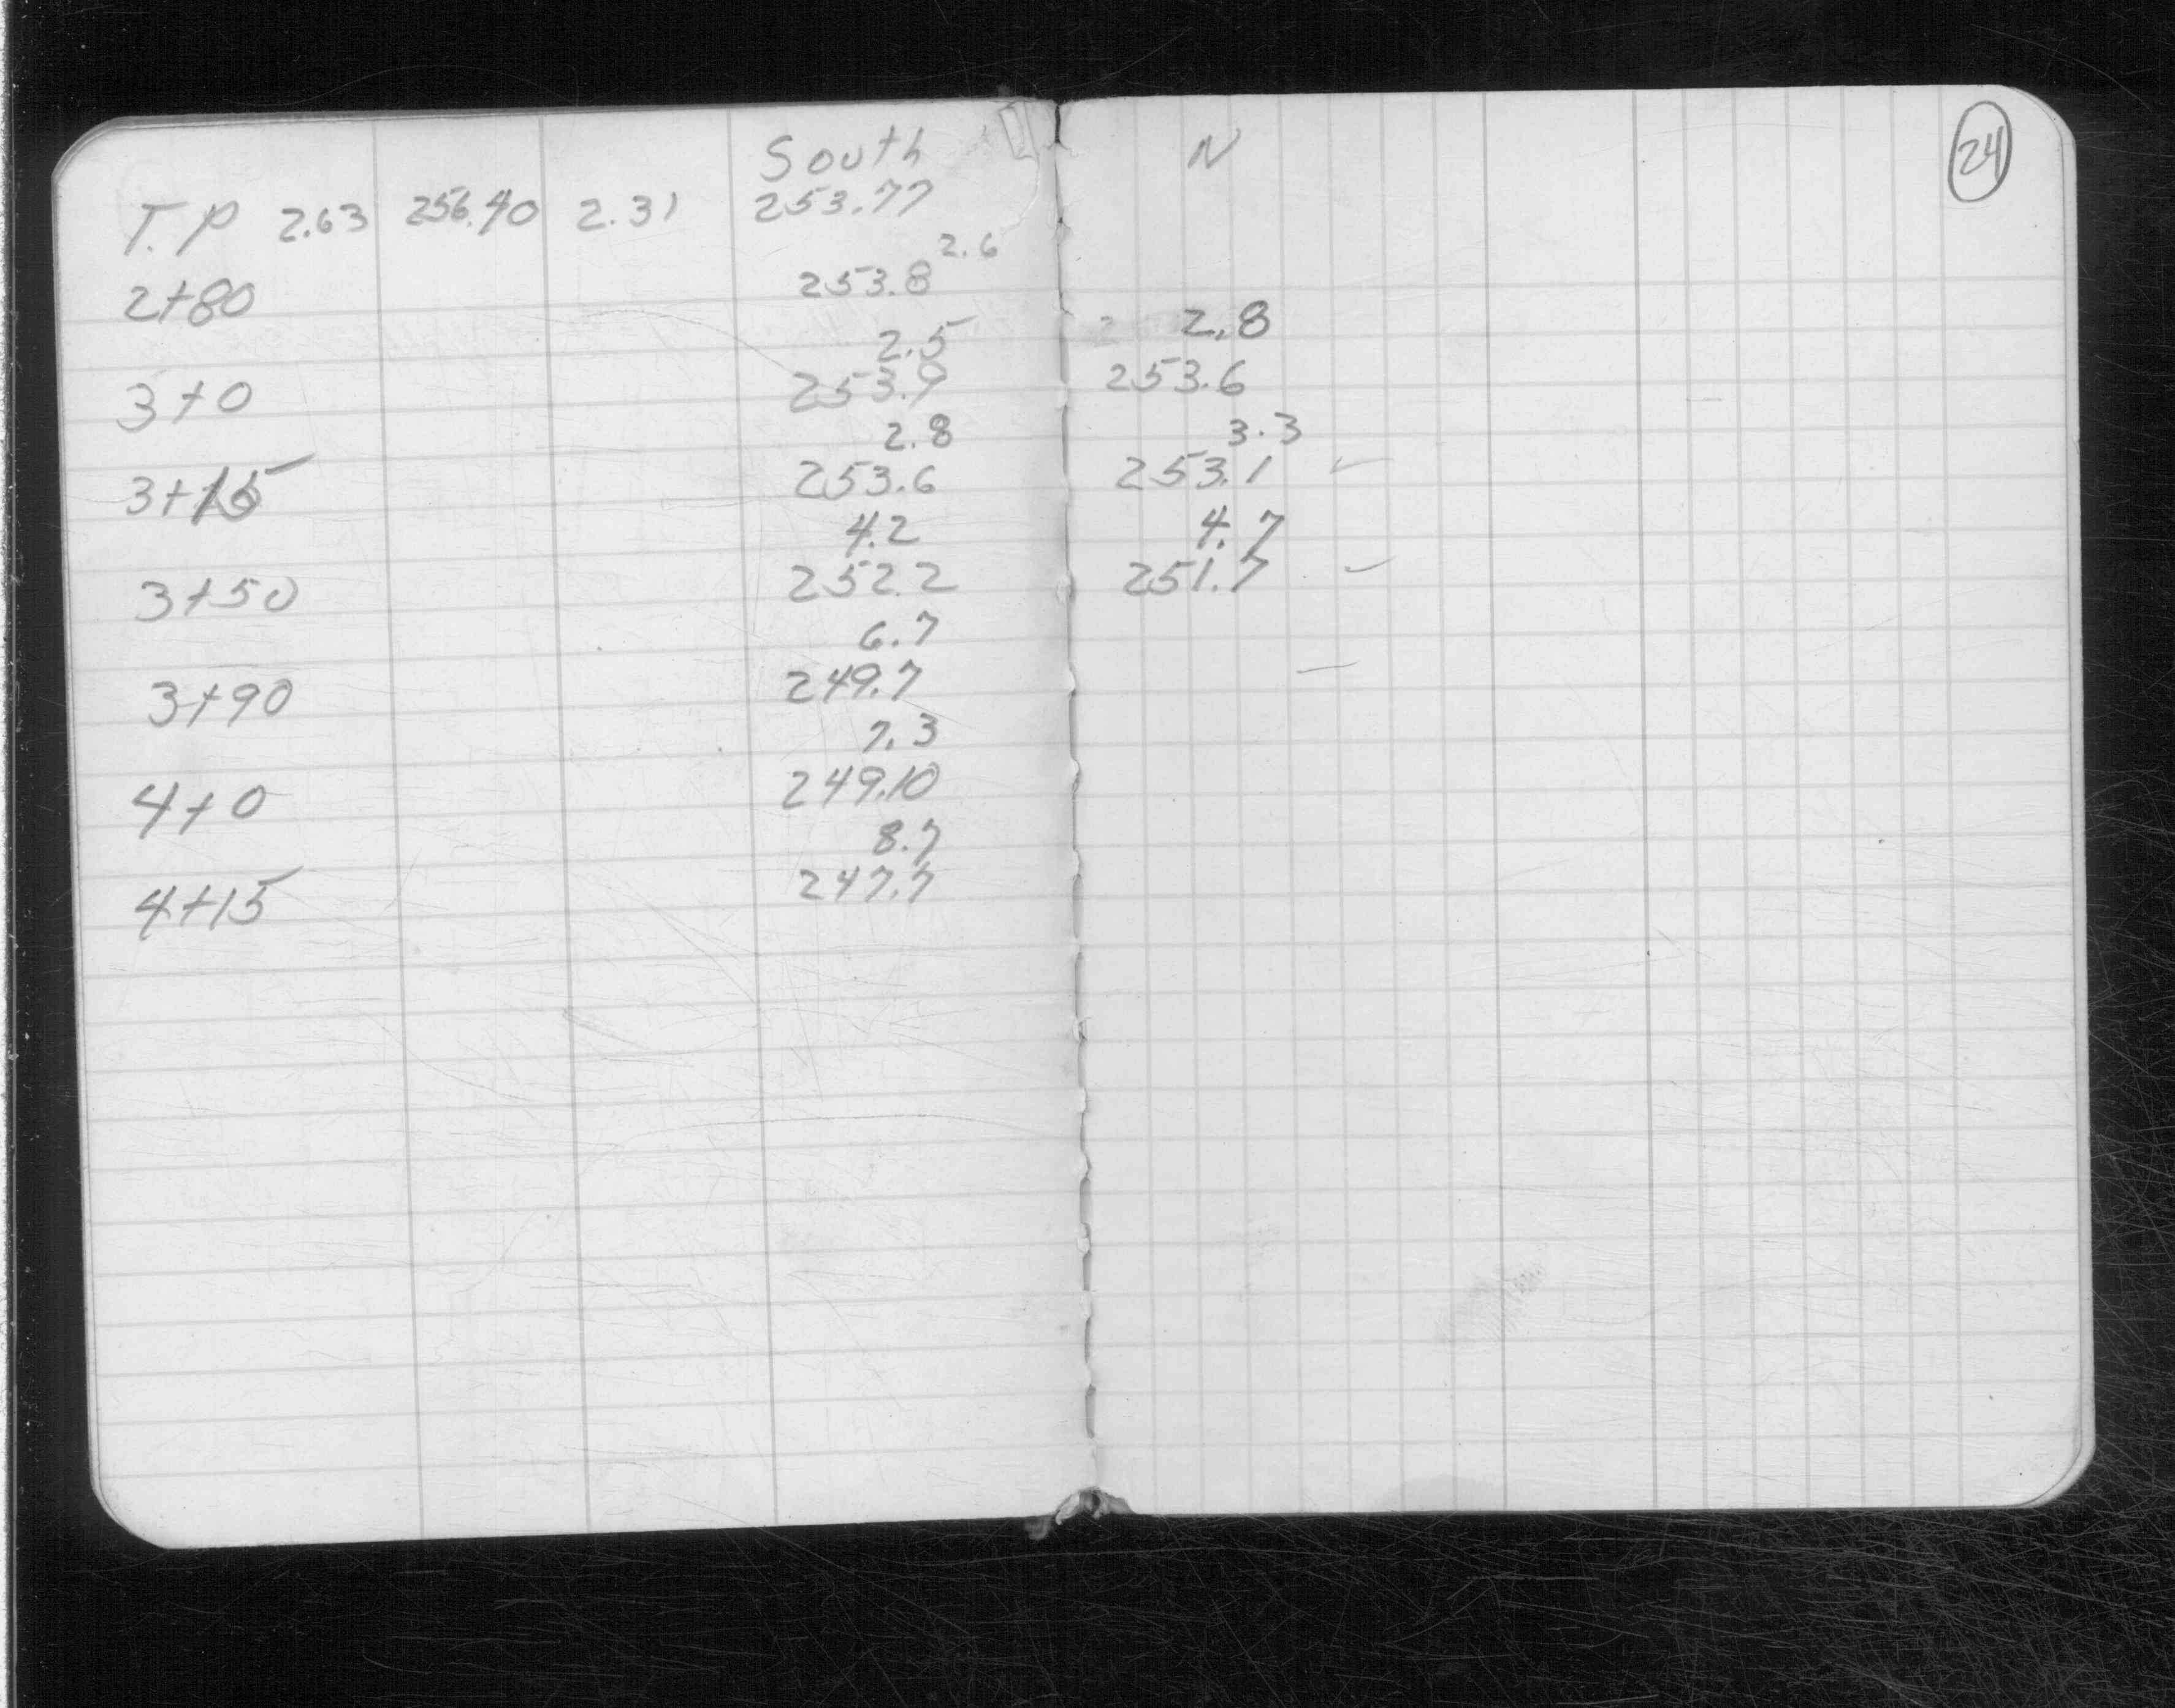 South N 24
T.P 2.63 256.40 2.31 253.77
2.6
2+80 253.8
2.5 2.8
3+0 253.9 253.6
2.8 3.3
3+15 253.6 253.1
4.2 4.7
3+50 252.2 251.7
6.7
3+90 249.7
7.3
4+0 249.10
8.7
4+15 247.7